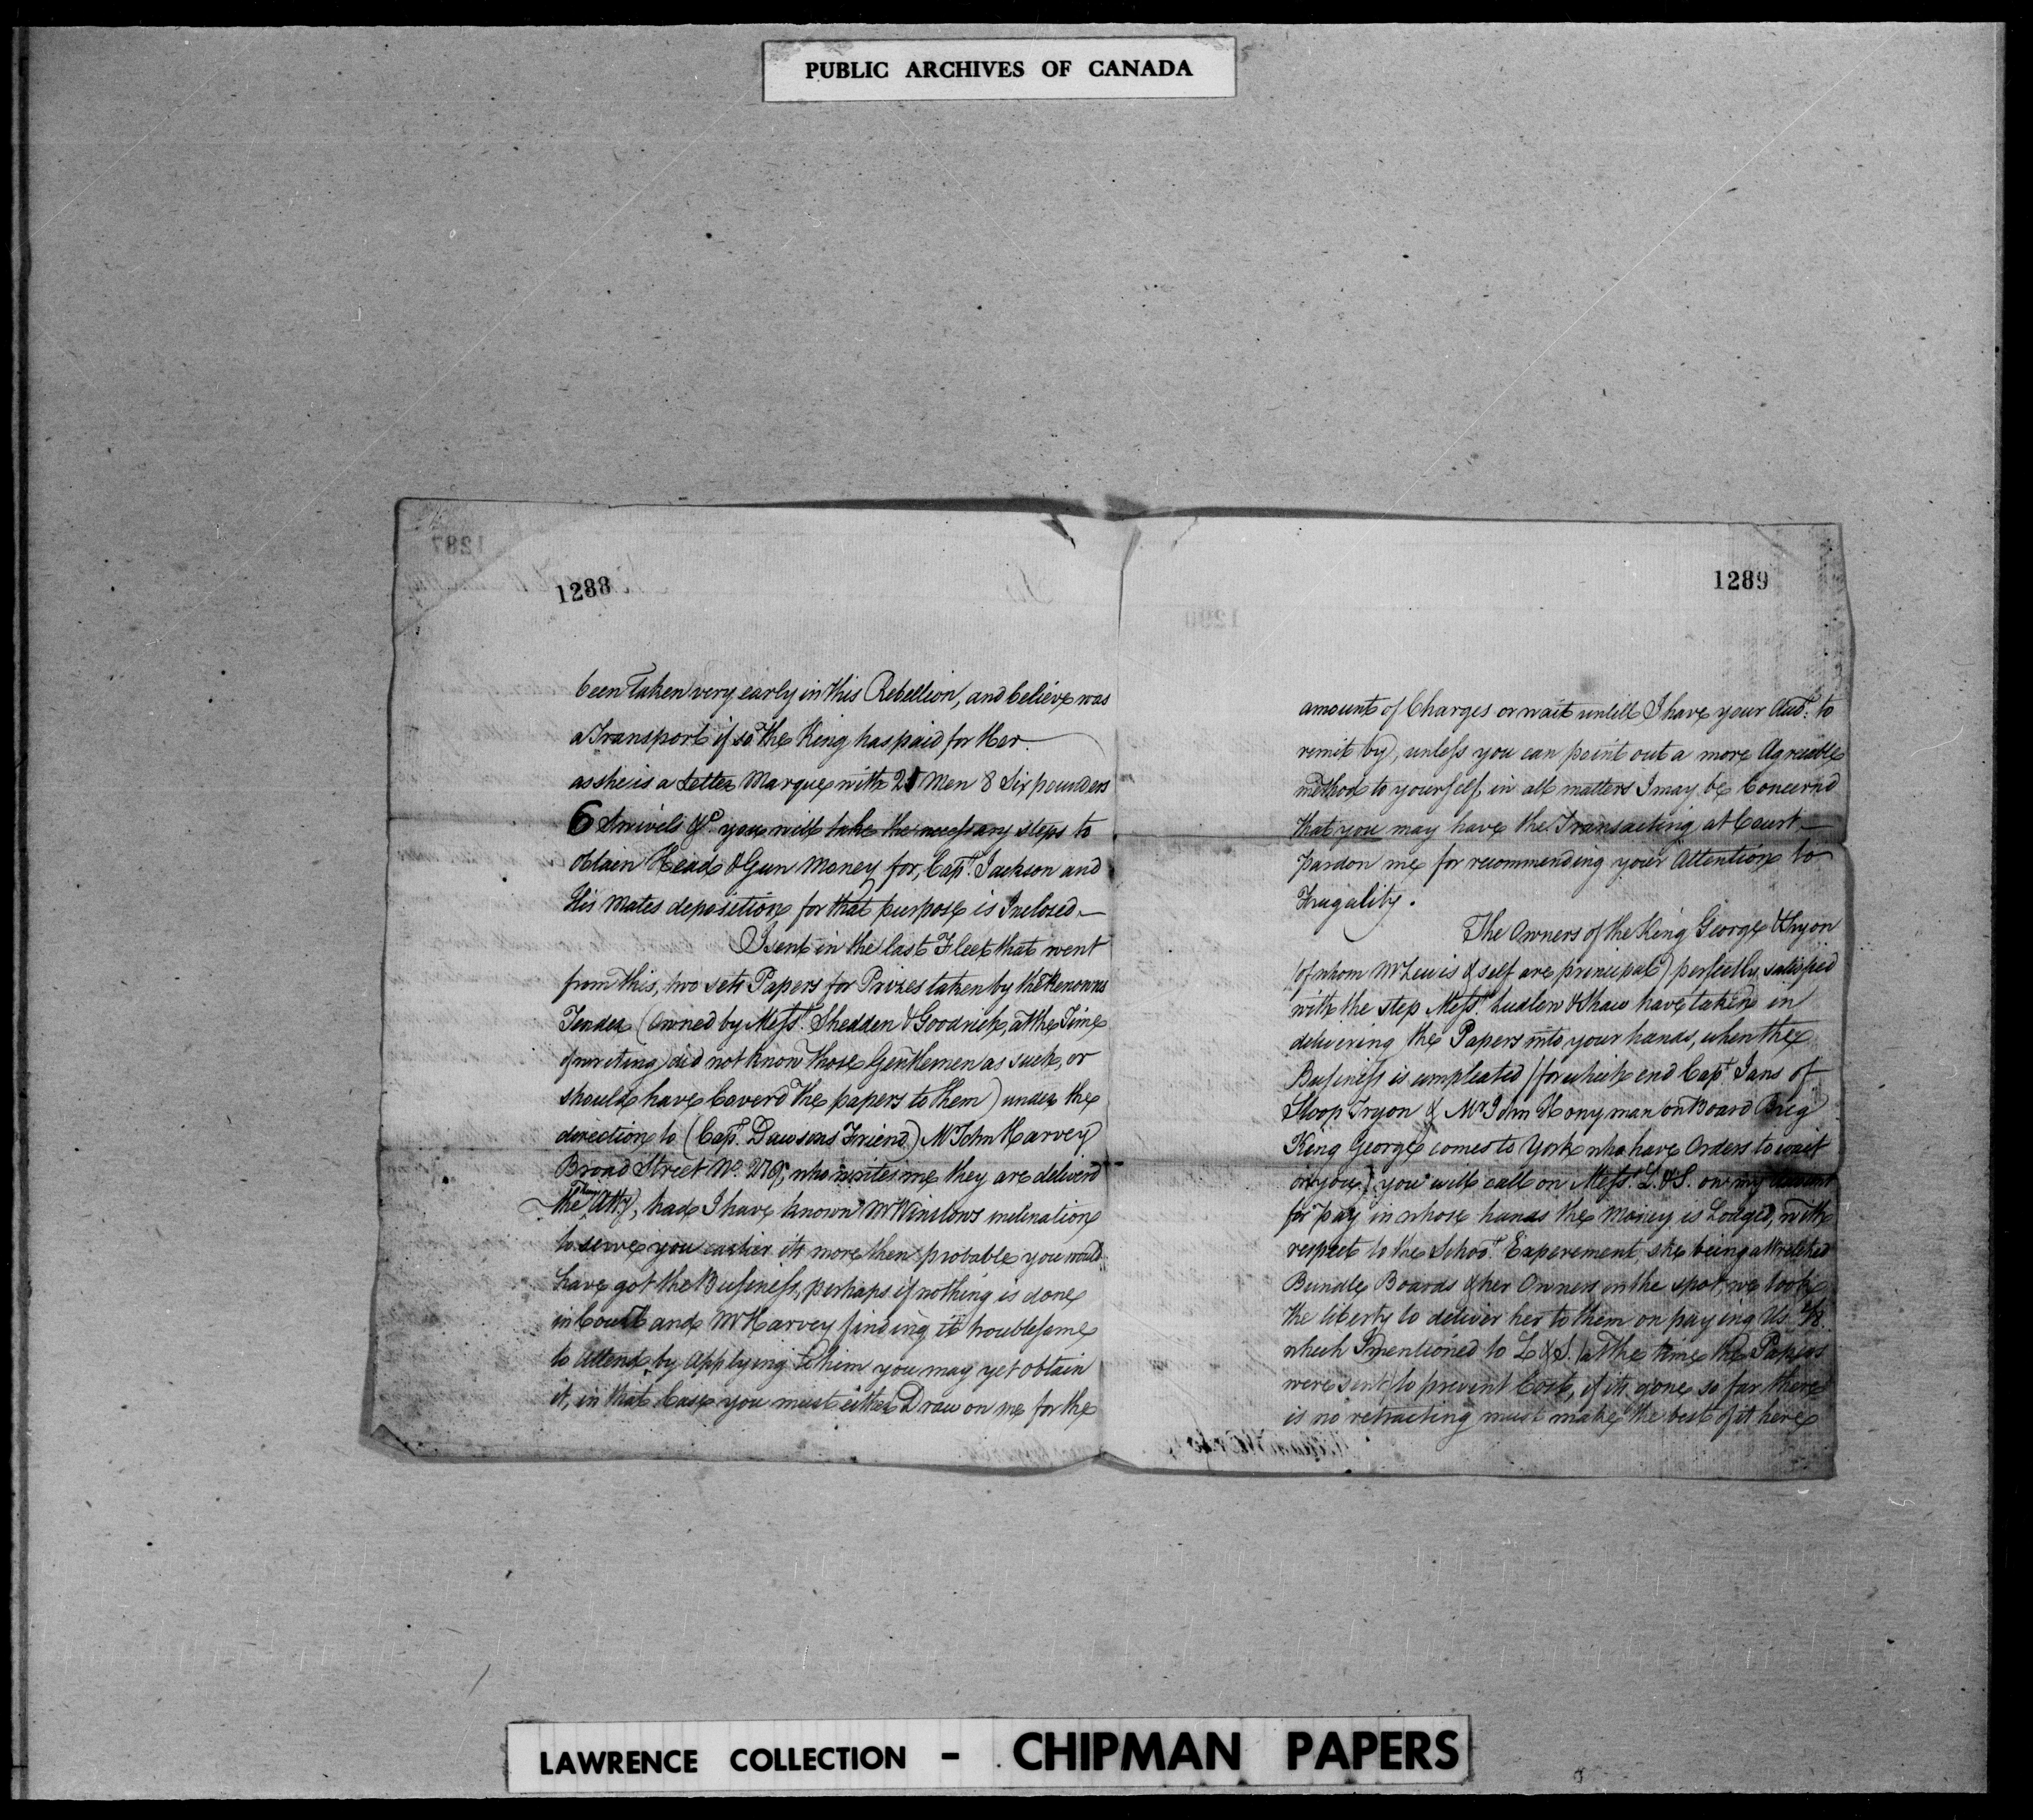 PUBLIC ARCHIVES OF CANADA
1288
been Taken very early in this Rebellion, and believe was
a Transport if so the King has paid for Her.
as she is a Letter Marque with 25 Men 8 Six pounders
6 Swivels &c. you will take the necessary steps to
obtain Head & Gun Money for, Capt. Jackson and
His Mates deposition for that purpose is Inclosed.—
I sent in the last Fleet that went
from this, two sets Papers for Prizes taken by the Renown's
Tender (Owned by Messrs. Shedden & Goodrich, at the Time
of writing) did not know those Gentlemen as such, or
should have Coverd the papers to them) under the
direction to (Capt. Dawsons Friend) Mr John Harvey
Broad Street No. who writes me they are deliverd
the Atty, had I have known Mr Winslows inclination
to serve you earlier its more then probable you would
have got the Business, perhaps if nothing is done
in Court and Mr Harvey finding it troublesome
to Attend by Applying to him you may yet obtain
it, in that Case you must either Draw on me for the
1289
amount of Charges or wait untill I have your Acct. to
remit by, unless you can point out a more Agreeable
method to yourself, in all matters I may be Concernd
that you may have the Transacting at Court.—
pardon me for recommending your Attention to
Frugality.
The Owners of the King George & Tryon
(of whom Mr Lewis & self are principal) perfectly satisfied
with the step Messrs. Ludlow & Shaw have taken in
delivering the Papers into your hands, when the
Business is compleated (for which end Capt. Jans of
Sloop Tryon & Mr John Honyman on Board Brig
King George comes to York who have Orders to wait
on you) you will call on Messrs. L. & S. on my
for pay in whose hands the Money is Lodged, with
respect to the Schoor. Experement, she being a wretched
Bundle Boards & her Owners on the spot, we took
the liberty to deliver her to them on paying Us
which I mentioned to L & S. (at the time the Papers
were sent) to prevent Cost, if its gone so far there
is no retracting must make the best of it here
LAWRENCE COLLECTION - CHIPMAN PAPERS